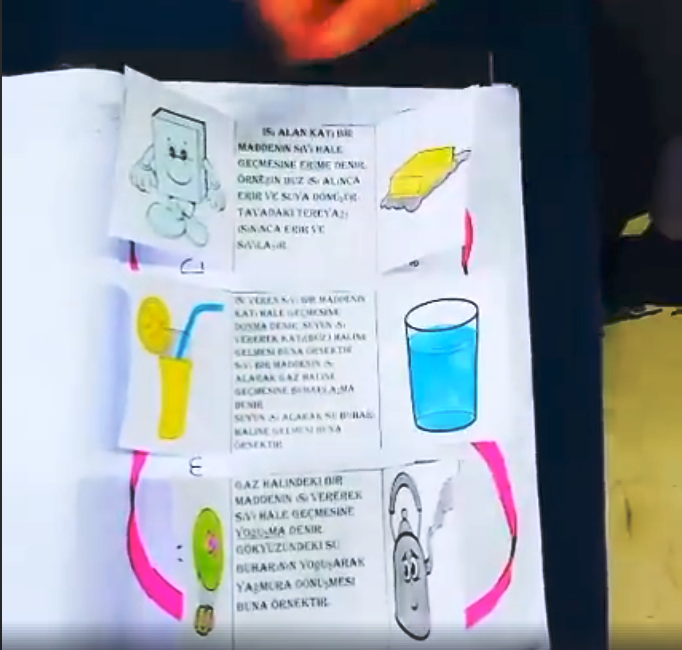 ISI ALAN KATI BİR
MADDENİN SIVI HALE
GEÇMESİNE ERİME DENİR.
ÖRNEĞİN BUZ ISI ALINCA
ERİR VE SUYA DÖNÜŞÜR.
TAVADAKİ TEREYAĞI
ISININCA ERİR VE
SIVILAŞIR.
ISI VEREN SIVI BİR MADDENİN
KATI HALE GEÇMESİNE
DONMA DENİR. SUYUN ISI
VEREREK KATI(BUZ) HALİNE
GELMESİ BUNA ÖRNEKTİR
SIVI BİR MADDENİN ISI
ALARAK GAZ HALİNE
GEÇMESİNE BUHARLAŞMA
DENİR
SUYUN ISI ALARAK SU BUHARI
HALİNE GELMESİ BUNA
ÖRNEKTİR.
GAZ HALİNDEKİ BİR
MADDENİN ISI VEREREK
SIVI HALE GEÇMESİNE
YOĞUŞMA DENİR.
GÖKYÜZÜNDEKİ SU
BUHARININ YOĞUŞARAK
YAĞMURA DÖNÜŞMESİ
BUNA ÖRNEKTİR.